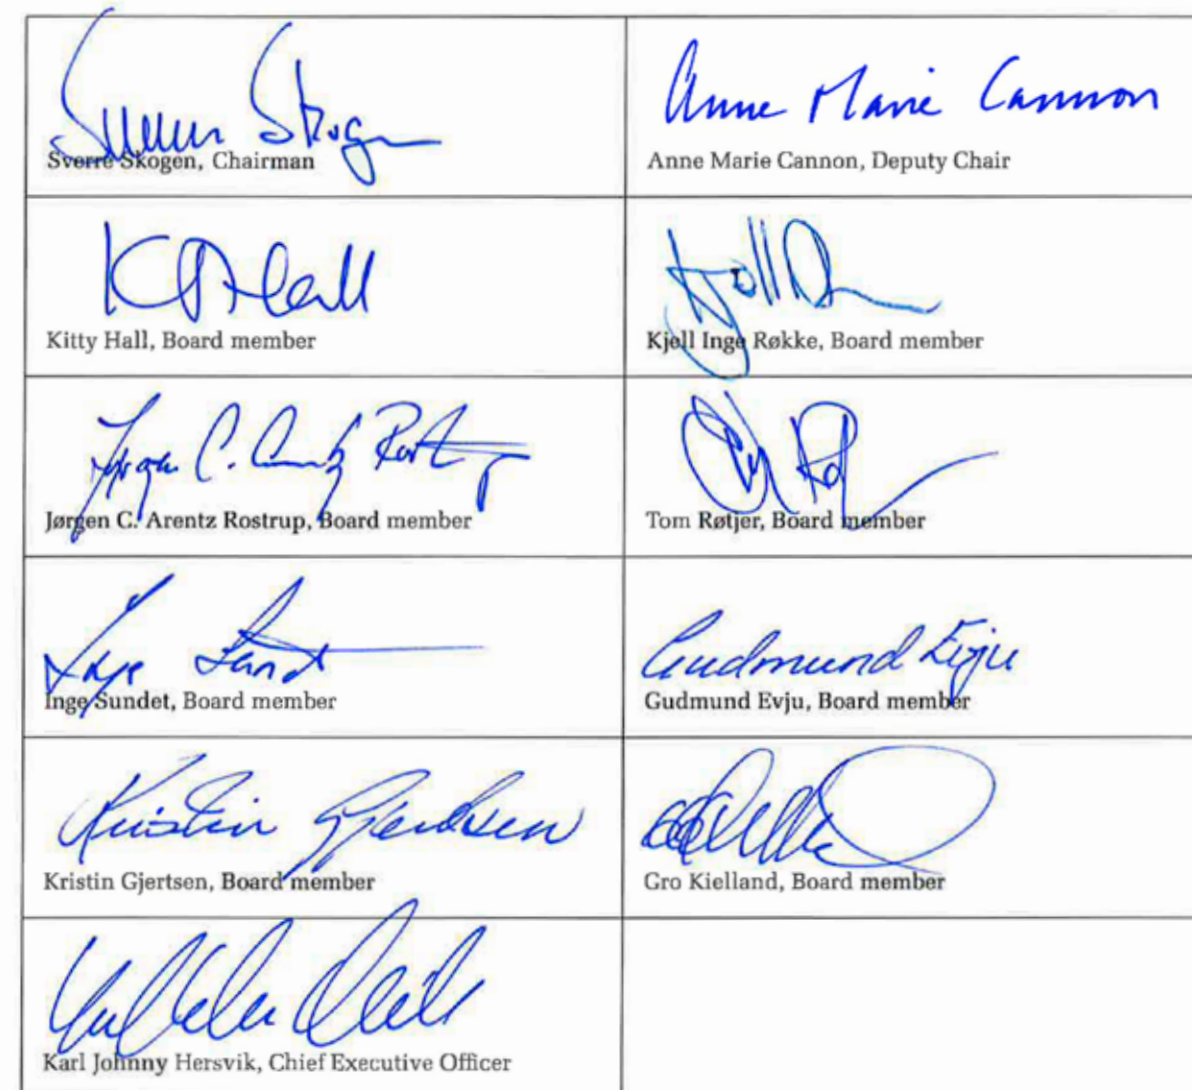 Sverre Skogen
Anne Marie Cannon
Sverre Skogen, Chairman
Anne Marie Cannon, Deputy Chair
K Hall
Kitty Hall, Board member
Kjell Inge Røkke, Board member
Jørgen C. Arentz Rostrup
Jørgen C. Arentz Rostrup, Board member
Tom Røtjer, Board member
Inge Sundet
Gudmund Evju
Inge Sundet, Board member
Gudmund Evju, Board member
Kristin Gjertsen
Kristin Gjertsen, Board member
Gro Kielland, Board member
Karl Johnny Hersvik, Chief Executive Officer